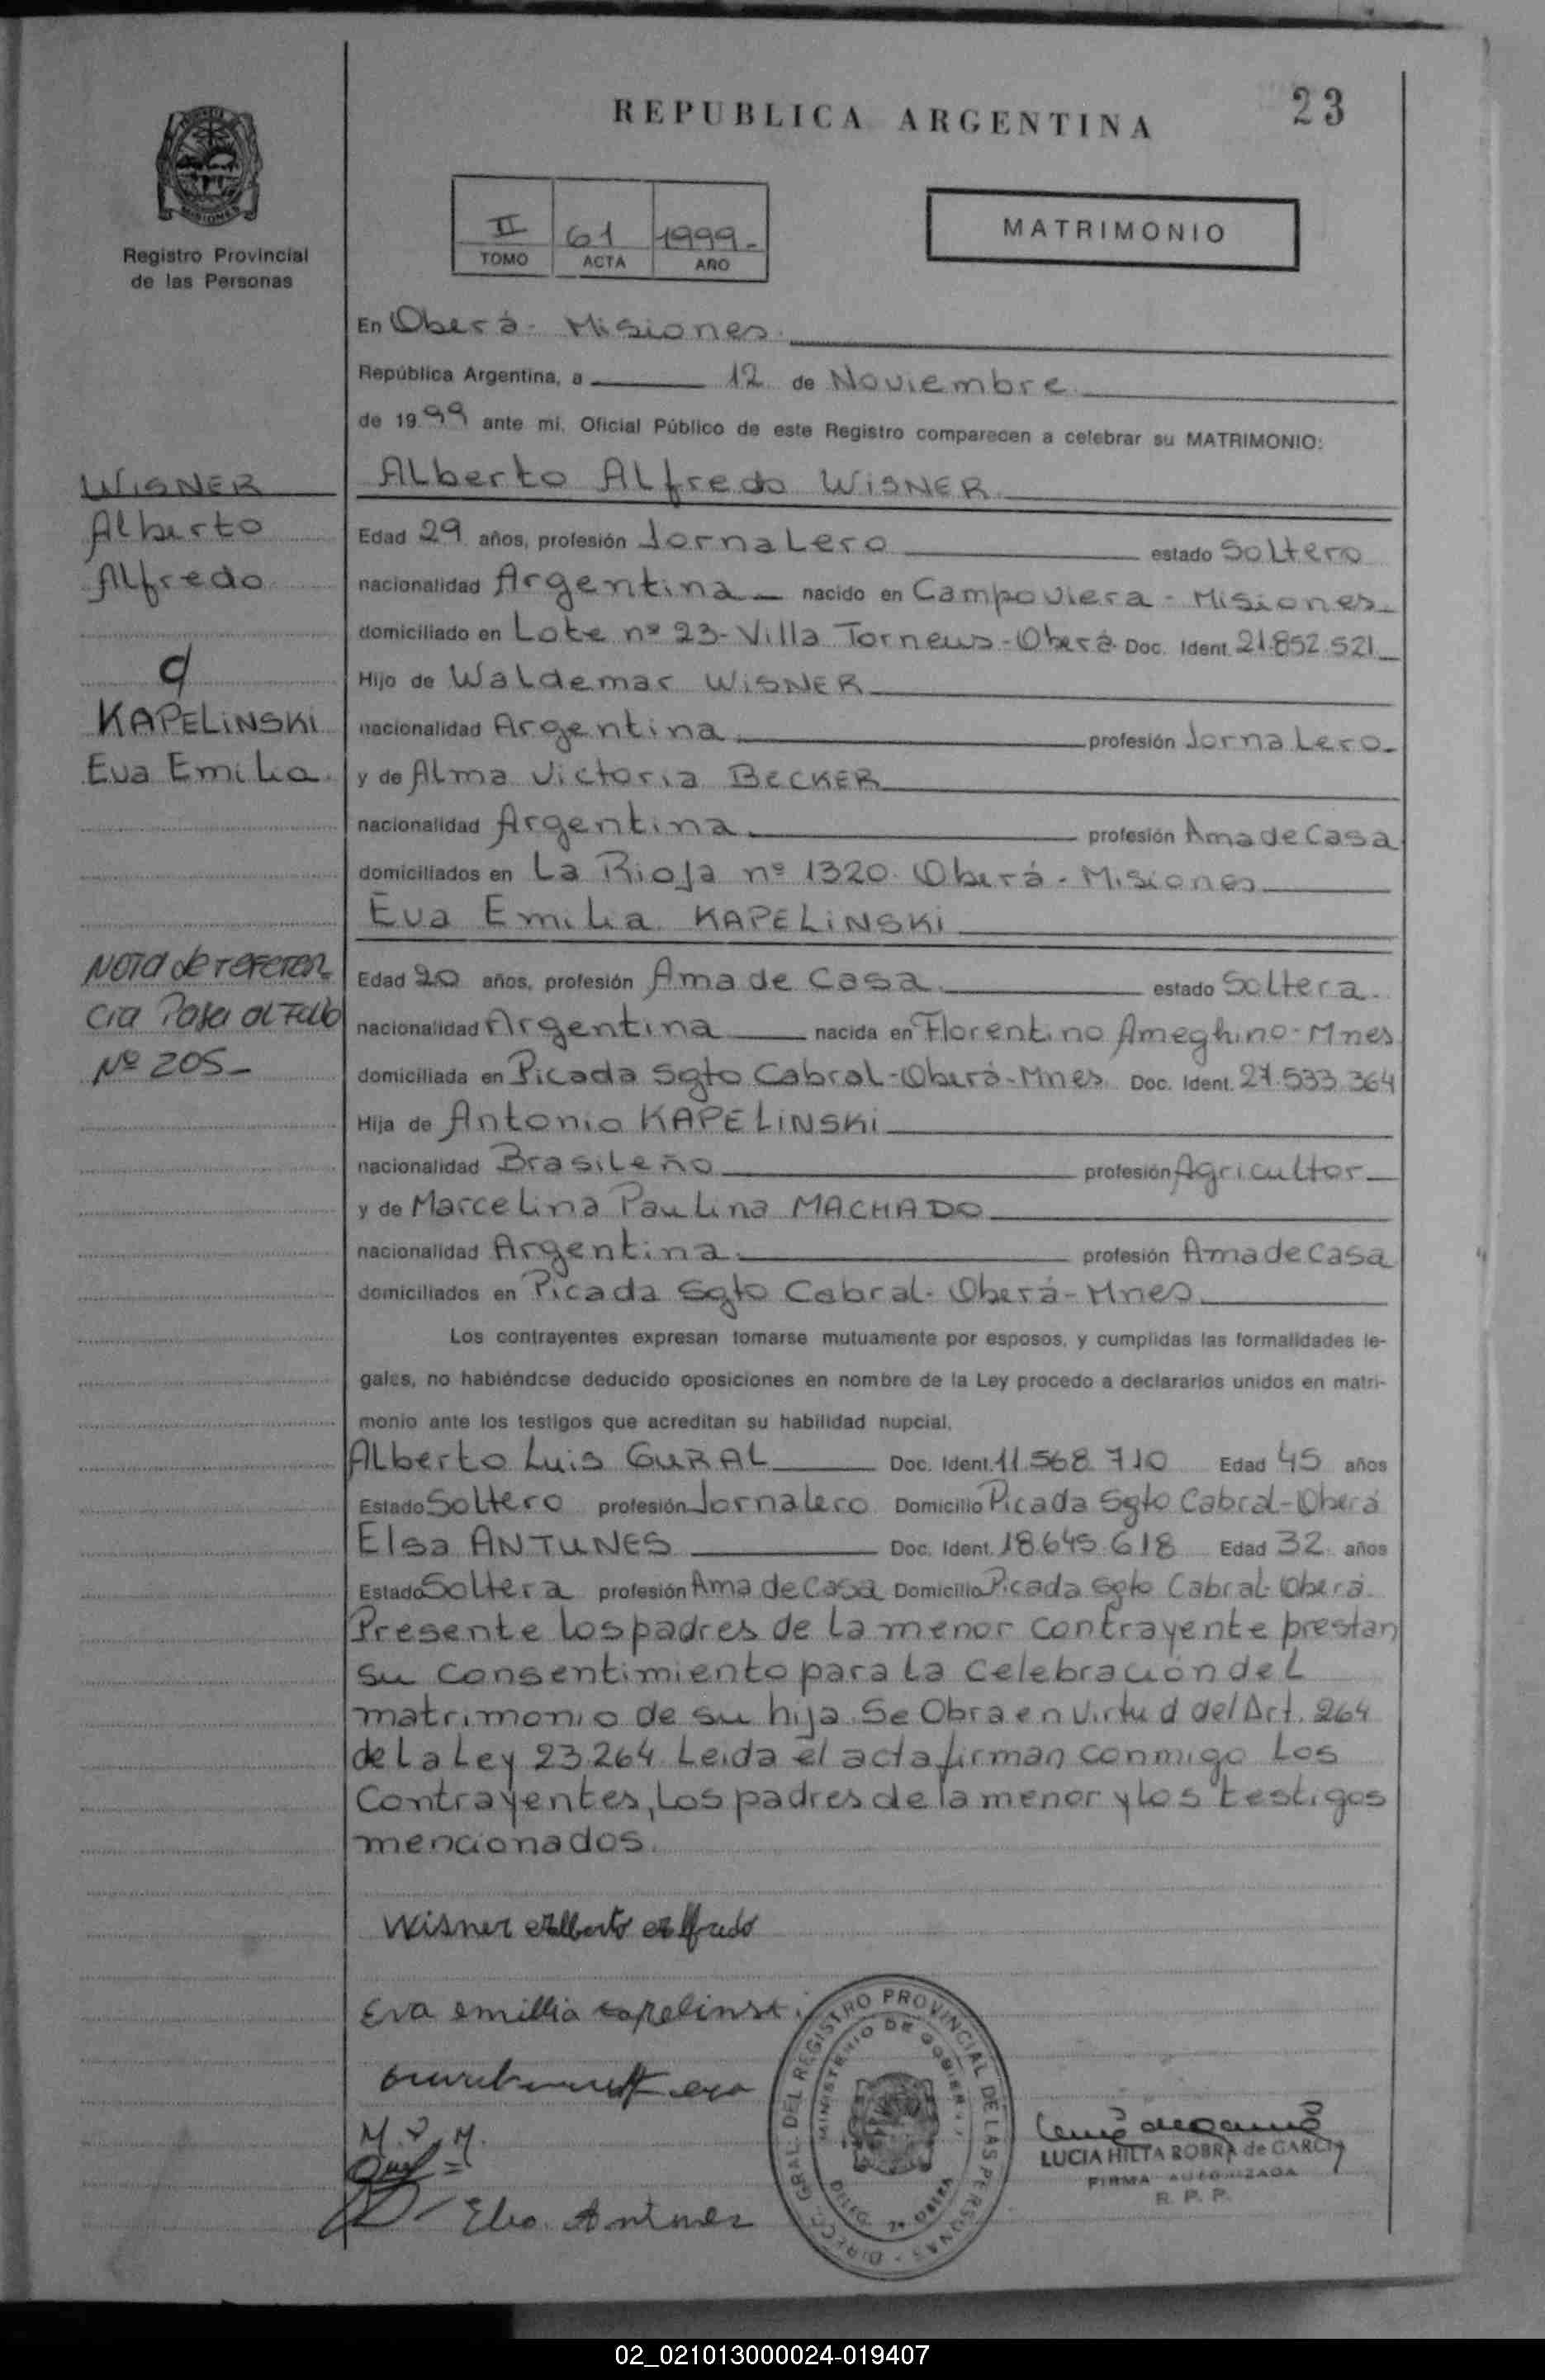 REPUBLICA ARGENTINA
23
MISIONES
Registro Provincial
de las Personas
II 61 1999.-
TOMO ACTA AÑO
MATRIMONIO
En Oberá- Misiones.
República Argentina, a 12 de Noviembre
de 1999 ante mi, Oficial Público de este Registro comparecen a celebrar su MATRIMONIO:
WISNER
Alberto
Alfredo
KAPELINSKI
Eva Emilia.
Nota de referen_
cia Pasa al Folio
Nº 205_
Alberto Alfredo WISNER
Edad 29 años, profesión Jornalero estado Soltero
nacionalidad Argentina nacido en Campo Viera - Misiones
domiciliado en Lote nº 23- Villa Torneus - Oberá Doc. Ident. 21.852.521
Hijo de Waldemar WISNER
nacionalidad Argentina profesión Jornalero
y de Alma Victoria BECKER
nacionalidad Argentina profesión Ama de Casa
domiciliados en La Rioja nº 1320. Oberá - Misiones
Eva Emilia KAPELINSKI
Edad 20 años, profesión Ama de Casa estado Soltera.
nacionalidad Argentina nacida en Florentino Ameghino- Mnes
domiciliada en Picada Sgto Cabral - Oberá - Mnes Doc. Ident. 27.533.364
Hija de Antonio KAPELINSKI
nacionalidad Brasileño profesión Agricultor
y de Marcelina Paulina MACHADO
nacionalidad Argentina profesión Ama de Casa
domiciliados en Picada Sgto Cabral- Oberá - Mnes.
Los contrayentes expresan tomarse mutuamente por esposos, y cumplidas las formalidades le-
gales, no habiéndose deducido oposiciones en nombre de la Ley procedo a declararlos unidos en matri-
monio ante los testigos que acreditan su habilidad nupcial.
Alberto Luis GURAL Doc. Ident. 11.568.710 Edad 45 años
Estado Soltero profesión Jornalero Domicilio Picada Sgto Cabral - Oberá
Elsa ANTUNES Doc. Ident. 18.645.618 Edad 32 años
Estado Soltera profesión Ama de Casa Domicilio Picada Sgto Cabral- Oberá
Presente los padres de la menor contrayente prestan
su consentimiento para la celebración del
matrimonio de su hija. Se Obra en virtud del Art. 264
de la Ley 23.264. Leida el acta firman conmigo los
contrayentes, los padres de la menor y los testigos
mencionados.
Wisner Alberto Alfredo
Eva emillia capelinski
M. P. M.
Elsa Antunes
DIRECC. GRAL. DEL REGISTRO PROVINCIAL DE LAS PERSONAS
MINISTERIO DE GOBIERNO
LUCIA HILTA ROBRA de GARCIA
FIRMA AUTORIZADA
R. P. P.
02_021013000024-019407